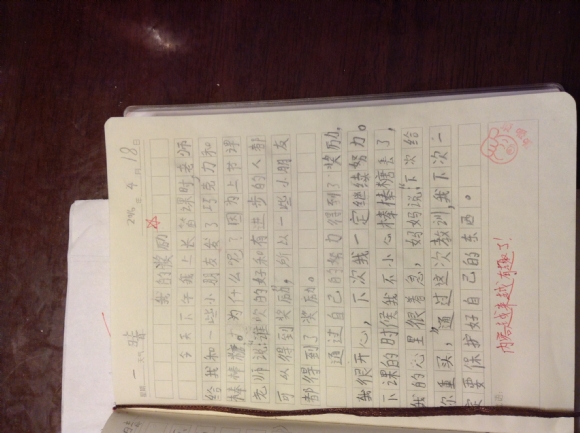 星期 一 天气 晴 2016年 4月 18日
我的奖励
今天下午我上长笛课时,老师
给我和一些小朋友发了巧克力和
棒棒糖。为什么呢?因为上节课
老师说:“谁吹的好和有进步的人都
可以得到奖励”,所以一些小朋友
都得到了奖励。
通过自己的努力得到了奖励,
我很开心,下次我一定继续努力。
下课的时候我不小心棒棒糖丢了,
我的心里很着急,妈妈说:“下次给
你重买”,通过这次教训,我下次一
定要保护好自己的东西。
内容越来越有趣了!